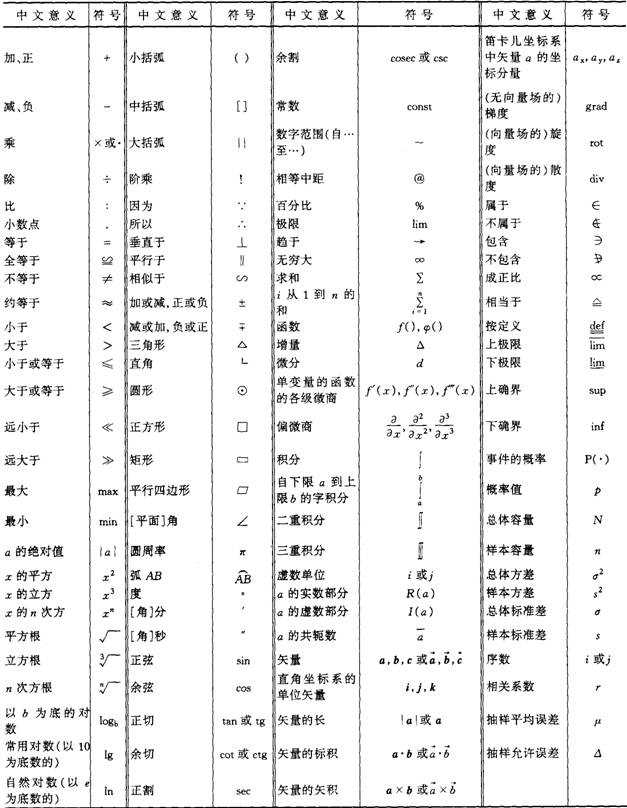 中文意义 符号 中文意义 符号 中文意义 符号 中文意义 符号
加、正 + 小括弧 ( ) 余割 cosec 或 csc 笛卡儿坐标系中矢量 a 的坐标分量 aₓ, aᵧ, a_z
减、负 − 中括弧 [ ] 常数 const (无向量场的)梯度 grad
乘 ×或· 大括弧 { } 数字范围(自…至…) ~ (向量场的)旋度 rot
除 ÷ 阶乘 ! 相等中距 @ (向量场的)散度 div
比 : 因为 ∵ 百分比 % 属于 ∈
小数点 . 所以 ∴ 极限 lim 不属于 ∉
等于 = 垂直于 ⊥ 趋于 → 包含 ∋
全等于 ≌ 平行于 ∥ 无穷大 ∞ 不包含 ∌
不等于 ≠ 相似于 ∽ 求和 ∑ 成正比 ∝
约等于 ≈ 加或减,正或负 ± i 从 1 到 n 的和 ∑ n i=1 相当于 ≙
小于 < 减或加,负或正 ∓ 函数 f(), φ() 按定义 def
大于 > 三角形 △ 增量 Δ 上极限 lim
小于或等于 ⩽ 直角 ∟ 微分 d 下极限 lim
大于或等于 ⩾ 圆形 ⊙ 单变量的函数的各级微商 f′(x), f″(x), f‴(x) 上确界 sup
远小于 ≪ 正方形 □ 偏微商 ∂/∂x, ∂²/∂x², ∂³/∂x³ 下确界 inf
远大于 ≫ 矩形 ▭ 积分 ∫ 事件的概率 P(·)
最大 max 平行四边形 ▱ 自下限 a 到上限 b 的字积分 ∫ b a 概率值 p
最小 min [平面]角 ∠ 二重积分 ∬ 总体容量 N
a 的绝对值 |a| 圆周率 π 三重积分 ∭ 样本容量 n
x 的平方 x² 弧 AB AB 虚数单位 i 或 j 总体方差 σ²
x 的立方 x³ 度 ° a 的实数部分 R(a) 样本方差 s²
x 的 n 次方 xⁿ [角]分 ′ a 的虚数部分 I(a) 总体标准差 σ
平方根 √ [角]秒 ″ a 的共轭数 a̅ 样本标准差 s
立方根 ∛ 正弦 sin 矢量 a, b, c 或 a⃗, b⃗, c⃗ 序数 i 或 j
n 次方根 ⁿ√ 余弦 cos 直角坐标系的单位矢量 i, j, k 相关系数 r
以 b 为底的对数 log_b 正切 tan 或 tg 矢量的长 |a| 或 a 抽样平均误差 μ
常用对数(以 10 为底数的) lg 余切 cot 或 ctg 矢量的标积 a·b 或 a⃗·b⃗ 抽样允许误差 Δ
自然对数(以 e 为底数的) ln 正割 sec 矢量的矢积 a×b 或 a⃗×b⃗